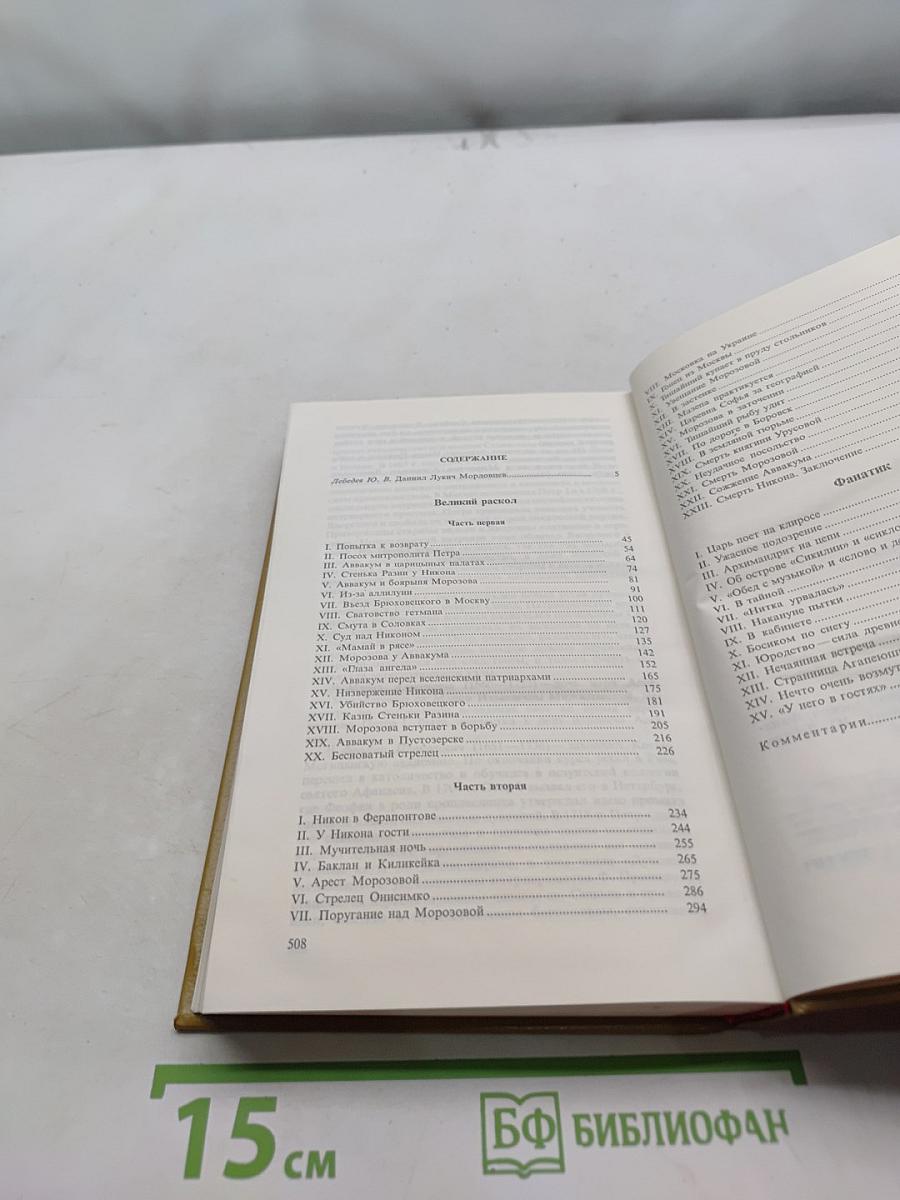 СОДЕРЖАНИЕ
Лебедев Ю. В. Даниил Лукич Мордовцев 5
Великий раскол
Часть первая
I. Попытка к возврату 45
II. Посох митрополита Петра 54
III. Аввакум в царицыных палатах 64
IV. Стенька Разин у Никона 74
V. Аввакум и боярыня Морозова 81
VI. Из-за аллилуии 91
VII. Въезд Брюховецкого в Москву 100
VIII. Сватовство гетмана 111
IX. Смута в Соловках 120
X. Суд над Никоном 127
XI. «Мамай в рясе» 135
XII. Морозова у Аввакума 142
XIII. «Глаза ангела» 152
XIV. Аввакум перед вселенскими патриархами 165
XV. Низвержение Никона 175
XVI. Убийство Брюховецкого 181
XVII. Казнь Стеньки Разина 191
XVIII. Морозова вступает в борьбу 205
XIX. Аввакум в Пустозерске 216
XX. Бесноватый стрелец 226
Часть вторая
I. Никон в Ферапонтове 234
II. У Никона гости 244
III. Мучительная ночь 255
IV. Баклан и Киликейка 265
V. Арест Морозовой 275
VI. Стрелец Онисимко 286
VII. Поругание над Морозовой 294
508
VIII. Московка на Украине
IX. Гонец из Москвы
X. Тишайший купает в пруду стольников
XI. Увещание Морозовой
XII. В застенке
XIII. Мазепа практикуется
XIV. Царевна Софья за географией
XV. Морозова в заточении
XVI. Тишайший рыбу удит
XVII. По дороге в Боровск
XVIII. В земляной тюрьме
XIX. Смерть княгини Урусовой
XX. Неудачное посольство
XXI. Смерть Морозовой
XXII. Сожжение Аввакума
XXIII. Смерть Никона. Заключение
Фанатик
I. Царь поет на клиросе
II. Ужасное подозрение
III. Архимандрит на цепи
IV. Об острове «Сикилии» и
V. «Обед с музыкой» и «слово и
VI. В тайной
VII. «Нитка урвалась»
VIII. Накануне пытки
IX. В кабинете
X. Босиком по снегу
XI. Юродство — сила
XII. Нечаянная встреча
XIII. Странница
XIV. Нечто очень
XV. «У него в гостях»
Комментарии
15 см
БФ БИБЛИОФАН